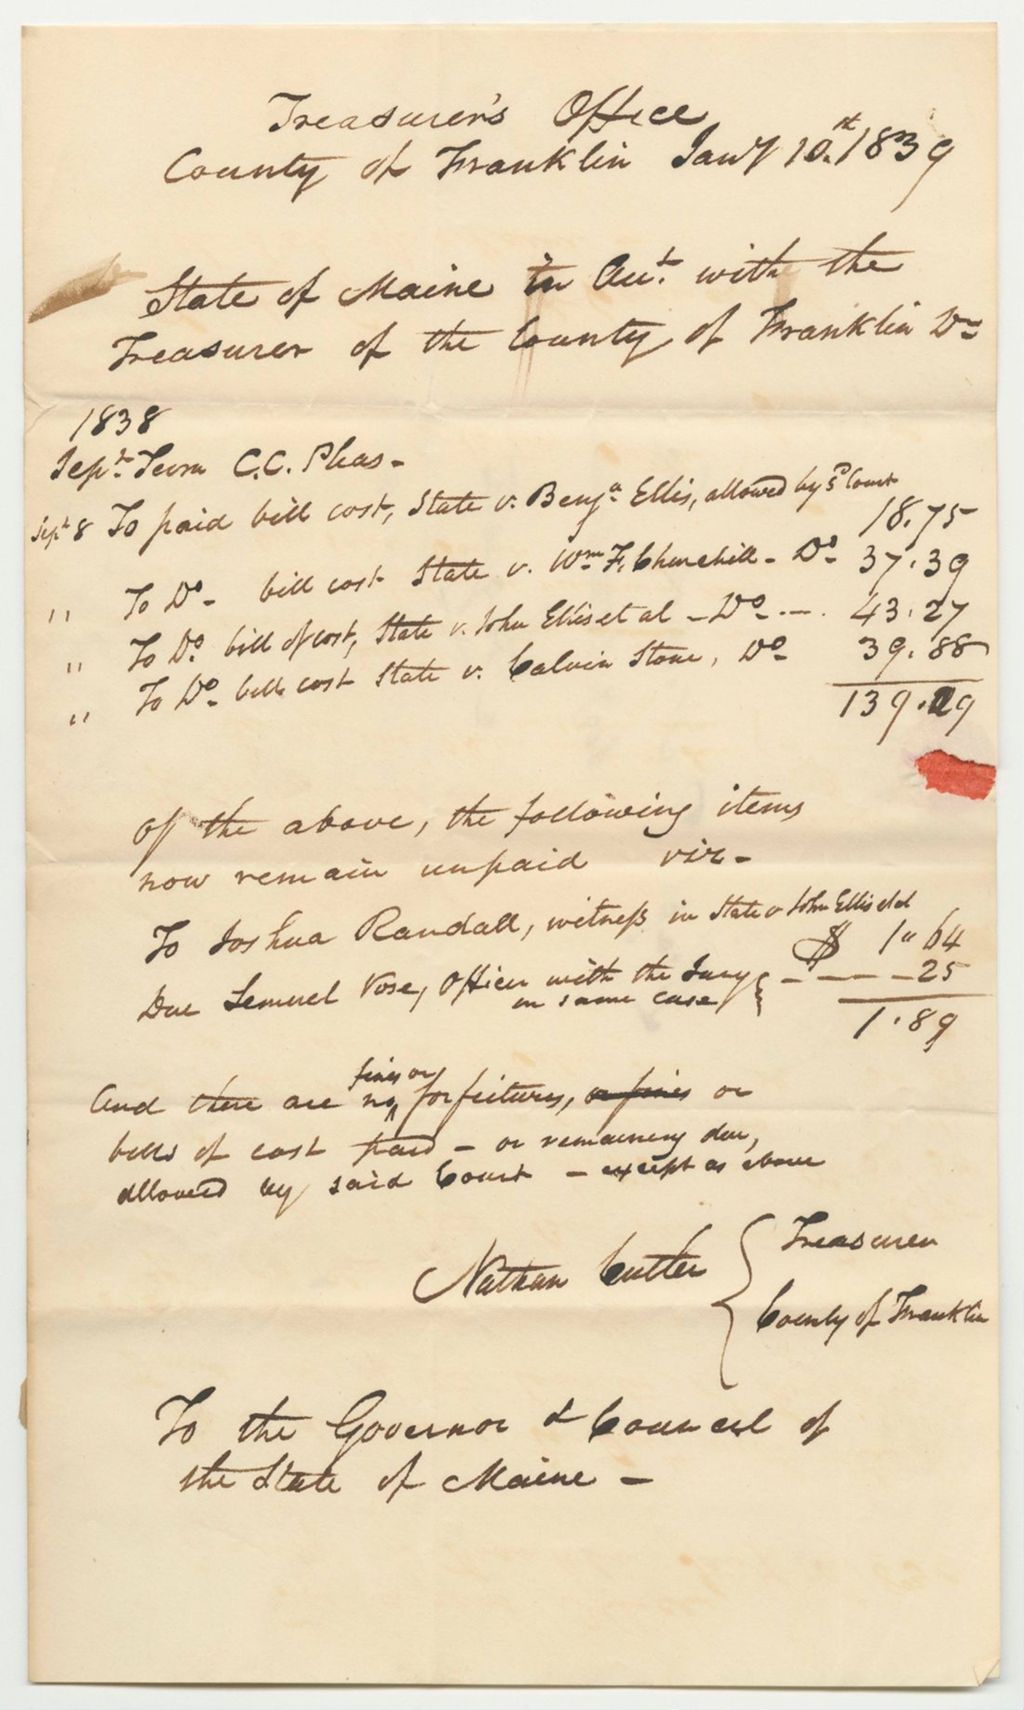 Treasurer's Office
County of Franklin Jany 10.th 1839
State of Maine in Acct. with the
Treasurer of the County of Franklin Dr
1838
Sept. Term C.C. Pleas -
Sept 8 To paid bill cost, State v. Benja. Ellis, allowed by sd Court 18.75
" To Do - bill cost State v. Wm F. Churchill - Do 37.39
" To Do. bill of cost, State v. John Ellis et al - Do - - . 43.27
" To Do - bill cost State v. Calvin Stone, Do - 39.88
139.29
Of the above, the following items
now remain unpaid viz -
To Joshua Randall, witness in State v John Ellis et al $ 1" 64
Due Lemuel Vose, Officer with the Jury - - - 25
in same case
1.89
fines or
And there are no forfeitures, or fines or
bills of cost paid - or remaining due,
allowed by said Court - except as above
Nathan Cutler Treasurer
County of Franklin
To the Governor & Council of
the State of Maine -